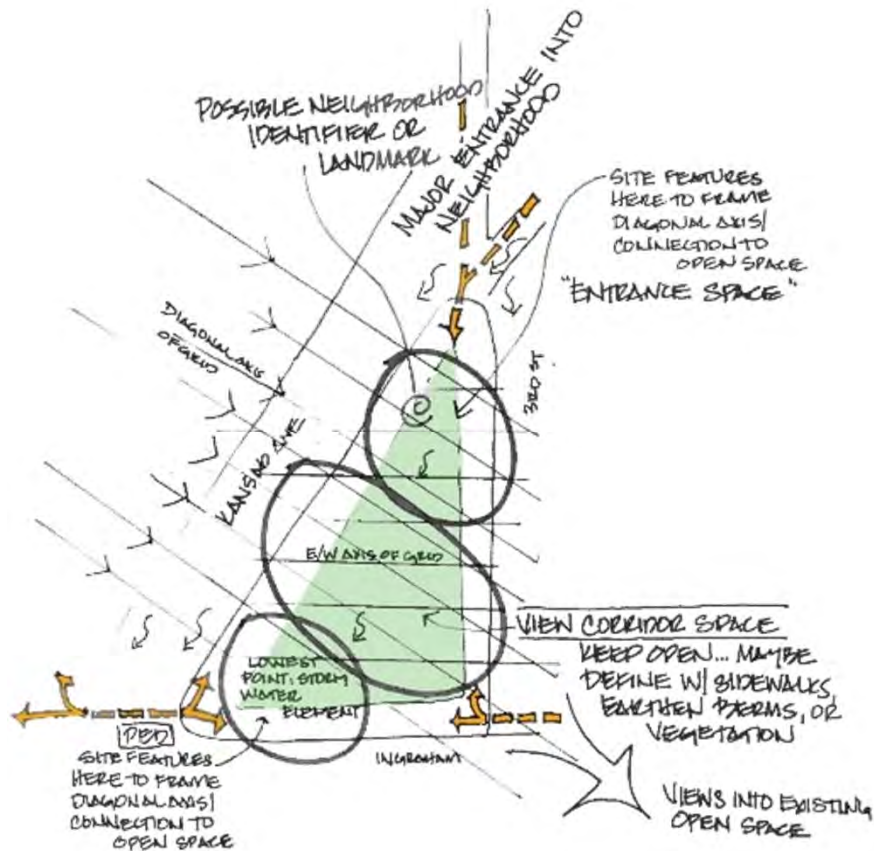 POSSIBLE NEIGHBORHOOD
IDENTIFIER OR
LANDMARK
MAJOR ENTRANCE INTO
NEIGHBORHOOD
SITE FEATURES
HERE TO FRAME
DIAGONAL AXIS/
CONNECTION TO
OPEN SPACE
"ENTRANCE SPACE"
DIAGONAL AXIS
OF GRID
KANSAS AVE
3RD ST
E/W AXIS OF GRID
VIEW CORRIDOR SPACE
KEEP OPEN... MAYBE
DEFINE W/ SIDEWALKS,
EARTHEN BERMS, OR
VEGETATION
LOWEST
POINT: STORM
WATER
ELEMENT
PED
SITE FEATURES
HERE TO FRAME
DIAGONAL AXIS/
CONNECTION TO
OPEN SPACE
INGRAHAM
VIEWS INTO EXISTING
OPEN SPACE